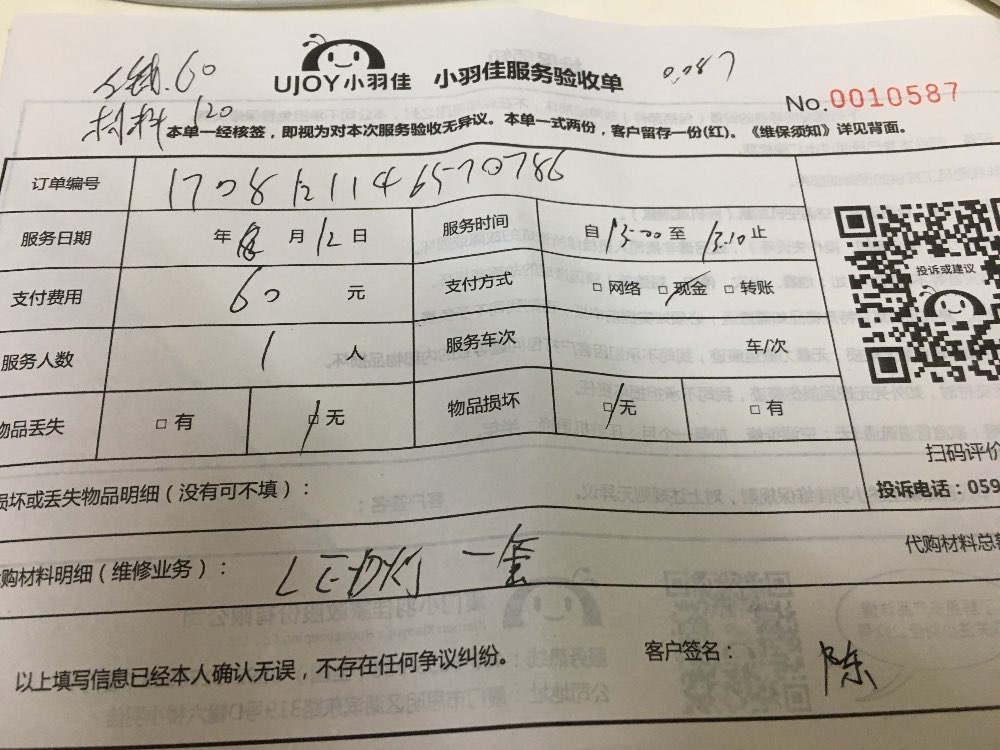 工钱.60
材料 120
UJOY小羽佳 小羽佳服务验收单
No.0010587
本单一经核签，即视为对本次服务验收无异议。本单一式两份，客户留存一份(红)。《维保须知》详见背面。
订单编号 1708121146570786
服务日期 年 8 月 12 日 服务时间 自 13-00 至 13.10 止
支付费用 60 元 支付方式 □网络 □现金 □转账
服务人数 1 人 服务车次 车/次
物品丢失 □有 □无 物品损坏 □无 □有
投诉或建议
扫码评价
投诉电话：059
损坏或丢失物品明细（没有可不填）：
购材料明细（维修业务）： LED灯 一套
代购材料总
以上填写信息已经本人确认无误，不存在任何争议纠纷。
客户签名： 陈